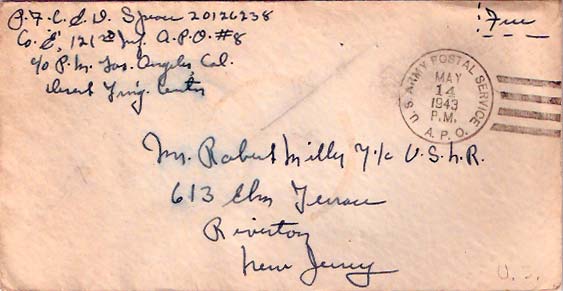 P.F.C. E. D. Spear 20126238
Co. E, 121st Inf. A.P.O. #8
c/o P.M. Los. Angeles Cal.
Desert Tr'ng. Center
Free
U.S. ARMY POSTAL SERVICE
MAY
14
1943
P.M.
A.P.O.
Mr. Robert Milly Y.1/c U.S.N.R.
613 Elm Terrace
Riverton
New Jersey
U.S.